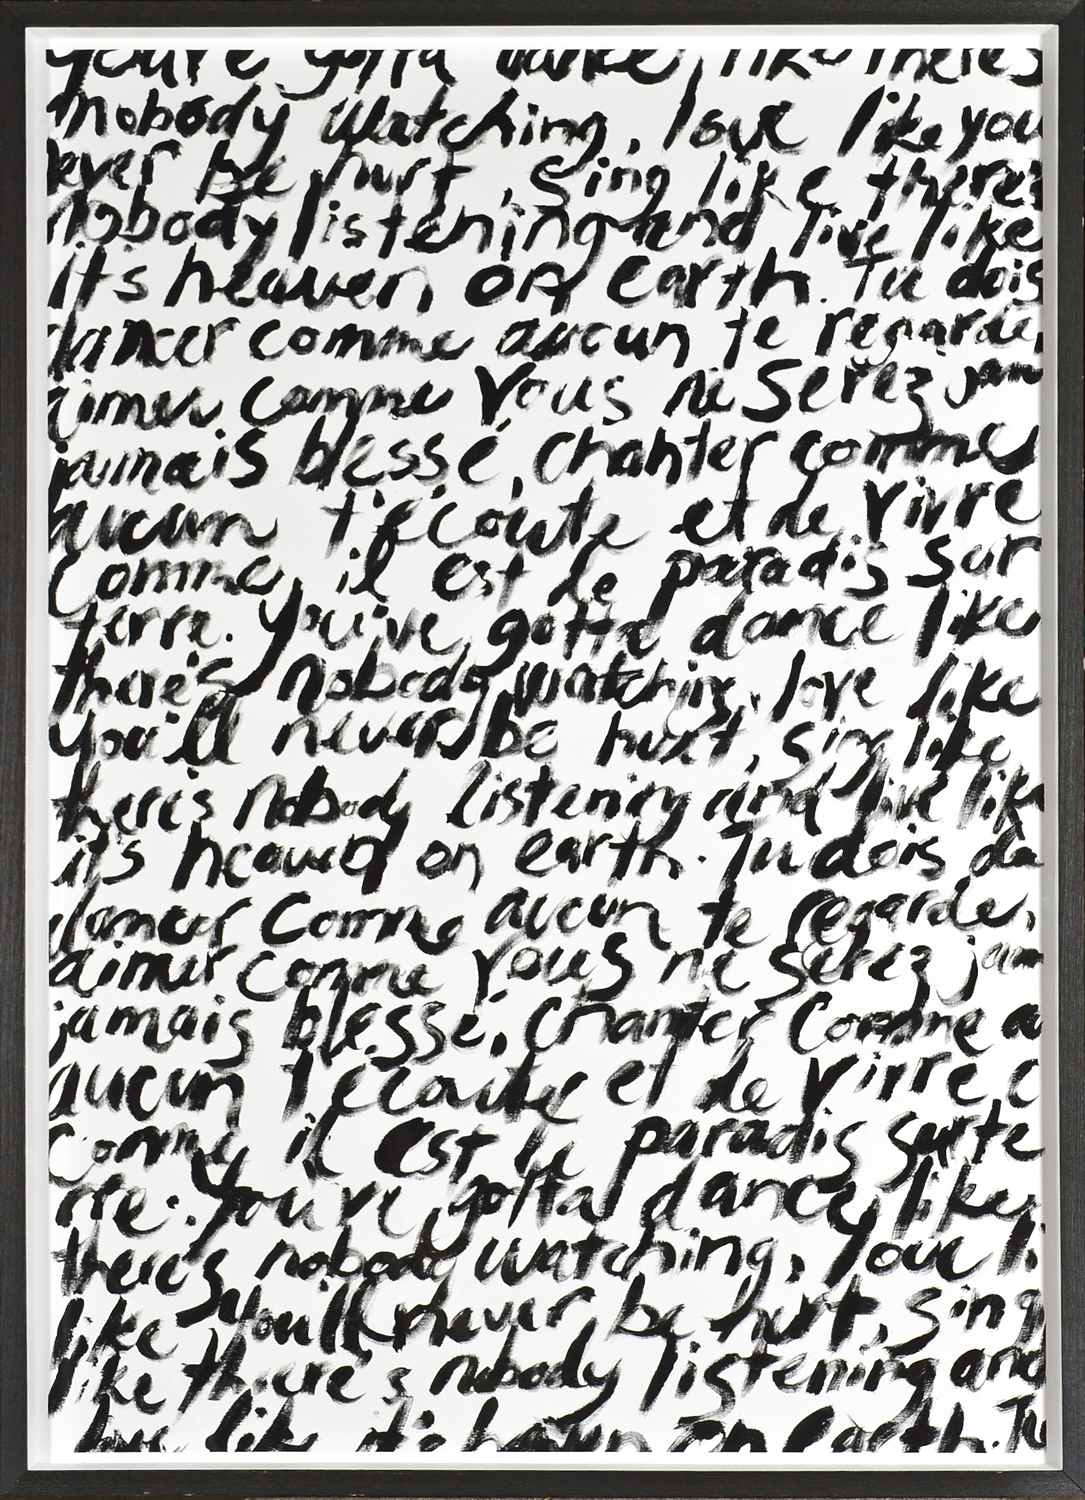 you've gotta dance, like there's
nobody watching, love like you
ever be hurt, sing like there's
nobody listening and live like
it's heaven on earth. Tu dois
dancer comme aucun te regarde,
aimer comme vous ne serez jam
jamais blessé, chanter comme
aucun t'écoute et de vivre
comme il est le paradis sur
terre. You've gotta dance like
there's nobody watching, love like
you'll never be hurt, sing like
there's nobody listening and live like
it's heaven on earth. Tu dois da
dancer comme aucun te regarde,
aimer comme vous ne serez jam
jamais blessé, chanter comme a
aucun t'écoute et de vivre c
comme il est le paradis sur te
rre. You've gotta dance, like
there's nobody watching, love li
like you'll never be hurt, sing
like there's nobody listening and
live like it's heaven on earth. Tu